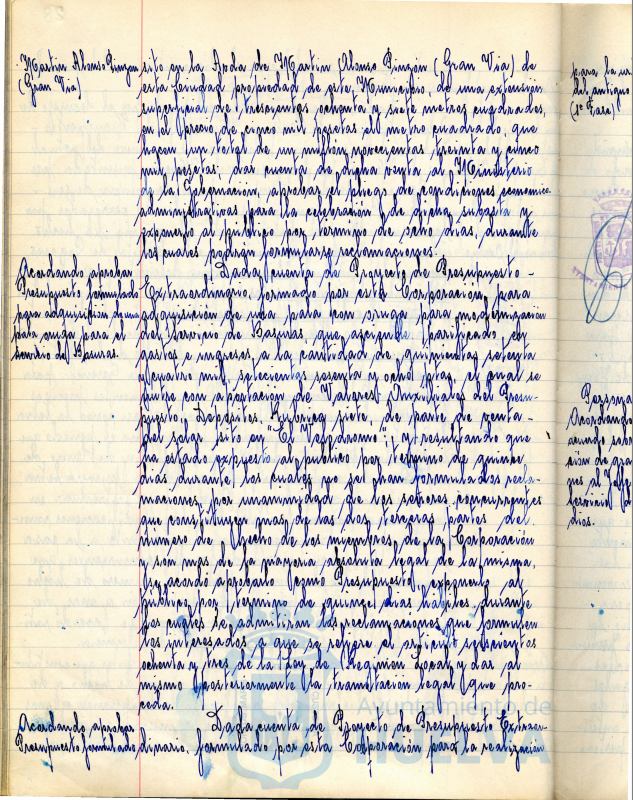 Martin Alonso Pinzon
(Gran Via)
sito en la Avda de Martin Alonso Pinzón (Gran Via) de
esta Ciudad propiedad de este Municipio, de una extensión
superficial de trescientos ochenta y siete metros cuadrados,
en el precio de cinco mil pesetas el metro cuadrado, que
hacen un total de un millón novecientas treinta y cinco
mil pesetas; dar cuenta de dicha venta al Ministerio
de la Gobernación, aprobar el pliego de condiciones economico
administrativas para la celebración de dicha subasta y
exponerlo al publico por termino de ocho dias, durante
los cuales podrán formularse reclamaciones.
Acordando aprobar
Presupuesto formulado
para adquisicion de una
pala oruga para el
servicio de Basuras.
Dada cuenta de Proyecto de Presupuesto
Extraordinario, formado por esta Corporación, para
adquisición de una pala con oruga para modernización
del Servicio de Basuras, que asciende, parificado en
gastos e ingresos, a la cantidad de quinientas setenta
y cuatro mil, setecientas sesenta y ocho ptas, el cual se
nutre con aportación de Valores Auxiliares del Presu-
puesto, Depositos, Rubrica siete, de parte de venta
del solar sito en "El Velodromo"; y resultando que
ha estado expuesto al publico por termino de quince
dias durante los cuales no se han formulados recla-
maciones, por unanimidad de los señores concurrentes
que constituyen mas de las dos terceras partes del
número de hecho de los miembros de la Corporación
y son mas de la mayoria absoluta legal de la misma,
se acordó aprobarlo como Presupuesto, exponerlo al
público por termino de quince dias habiles durante
los cuales se admitirán las reclamaciones que formulen
los interesados a que se refiere el articulo seiscientos
ochenta y tres de la Ley de Regimen Local, y dar al
mismo posteriormente la tramitación legal que pro-
ceda.
Acordando aprobar
Presupuesto formulado
Dada cuenta de Proyecto de Presupuesto Extraor-
dinario, formulado por esta Corporación para la realización
para la ur
del antiguo
(1ª Fase)
Persona
Acordando
acuerdo sob
ción de gra
nes al Jefe
dios.
Ayuntamiento de
HUELVA